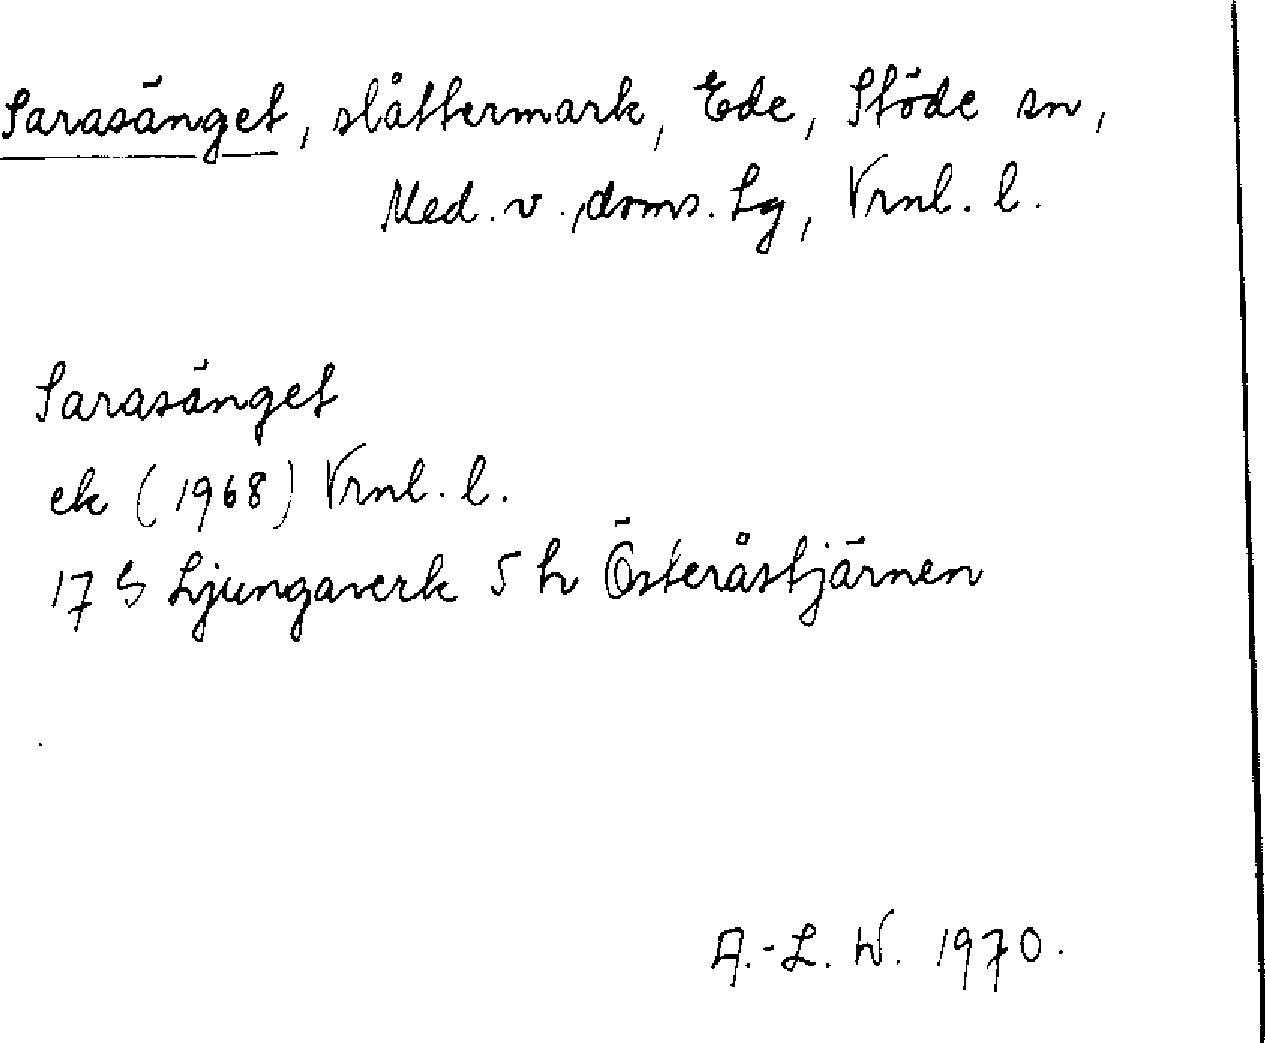 Sarasänget, slåttermark, Ede, Stöde sn,
Med. v., doms. Lg, Vrnl. l.
Sarasänget
ek (1968) Vrnl. l.
17 G Ljungaverk 5 h Österåstjärnen
A.-L. W. 1970.